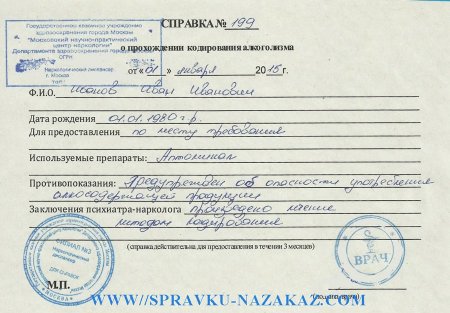 Государственное казенное учреждение
здравоохранения города Москвы
"Московский научно-практический
центр наркологии"
Департамента здравоохранения города Москвы
ОГРН
Наркологический диспансер
г. Москва
СПРАВКА № 199
о прохождении кодирования алкоголизма
от «01» января 2015г.
Ф.И.О. Иванов Иван Иванович
Дата рождения 01.01.1980 г.р.
Для предоставления по месту требования
Используемые препараты:
Противопоказания: Предупрежден об опасности употребления
алкосодержащей продукции
Заключения психиатра-нарколога произведено лечение
методом кодирования
(справка действительна для предоставления в течении 3 месяцев)
ФИЛИАЛ №3
Наркологический
диспансер
ДЛЯ СПРАВОК
МОСКВА
ВРАЧ
М.П.
WWW//SPRAVKU-NAZAKAZ.COM